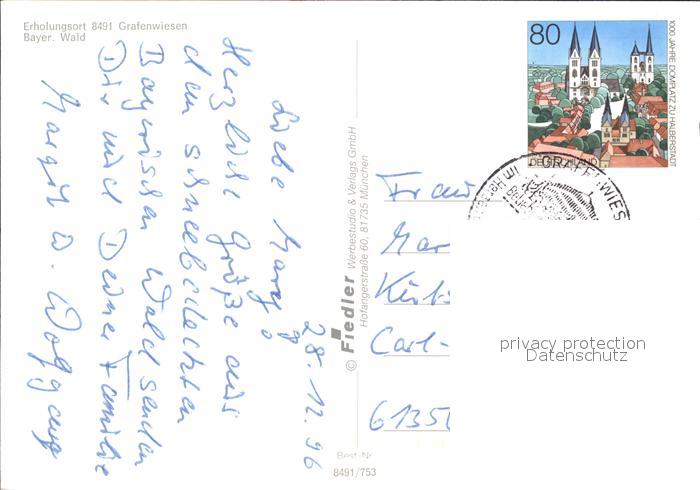 Erholungsort 8491 Grafenwiesen
Bayer. Wald
28.12.96
Liebe
Herzliche Grüße aus
dem schneebedeckten
Bayrischen Wald senden
Dir und Deiner Familie
Margit u. Wolfgang
© Fiedler Werbestudio & Verlags GmbH
Hofangerstraße 60, 81735 München
Best-Nr
8491/753
80
1000 JAHRE DOMPLATZ ZU HALBERSTADT
DEUTSCHLAND
GRAFENWIES
Frau
Mar
Carl-
61351
privacy protection
Datenschutz